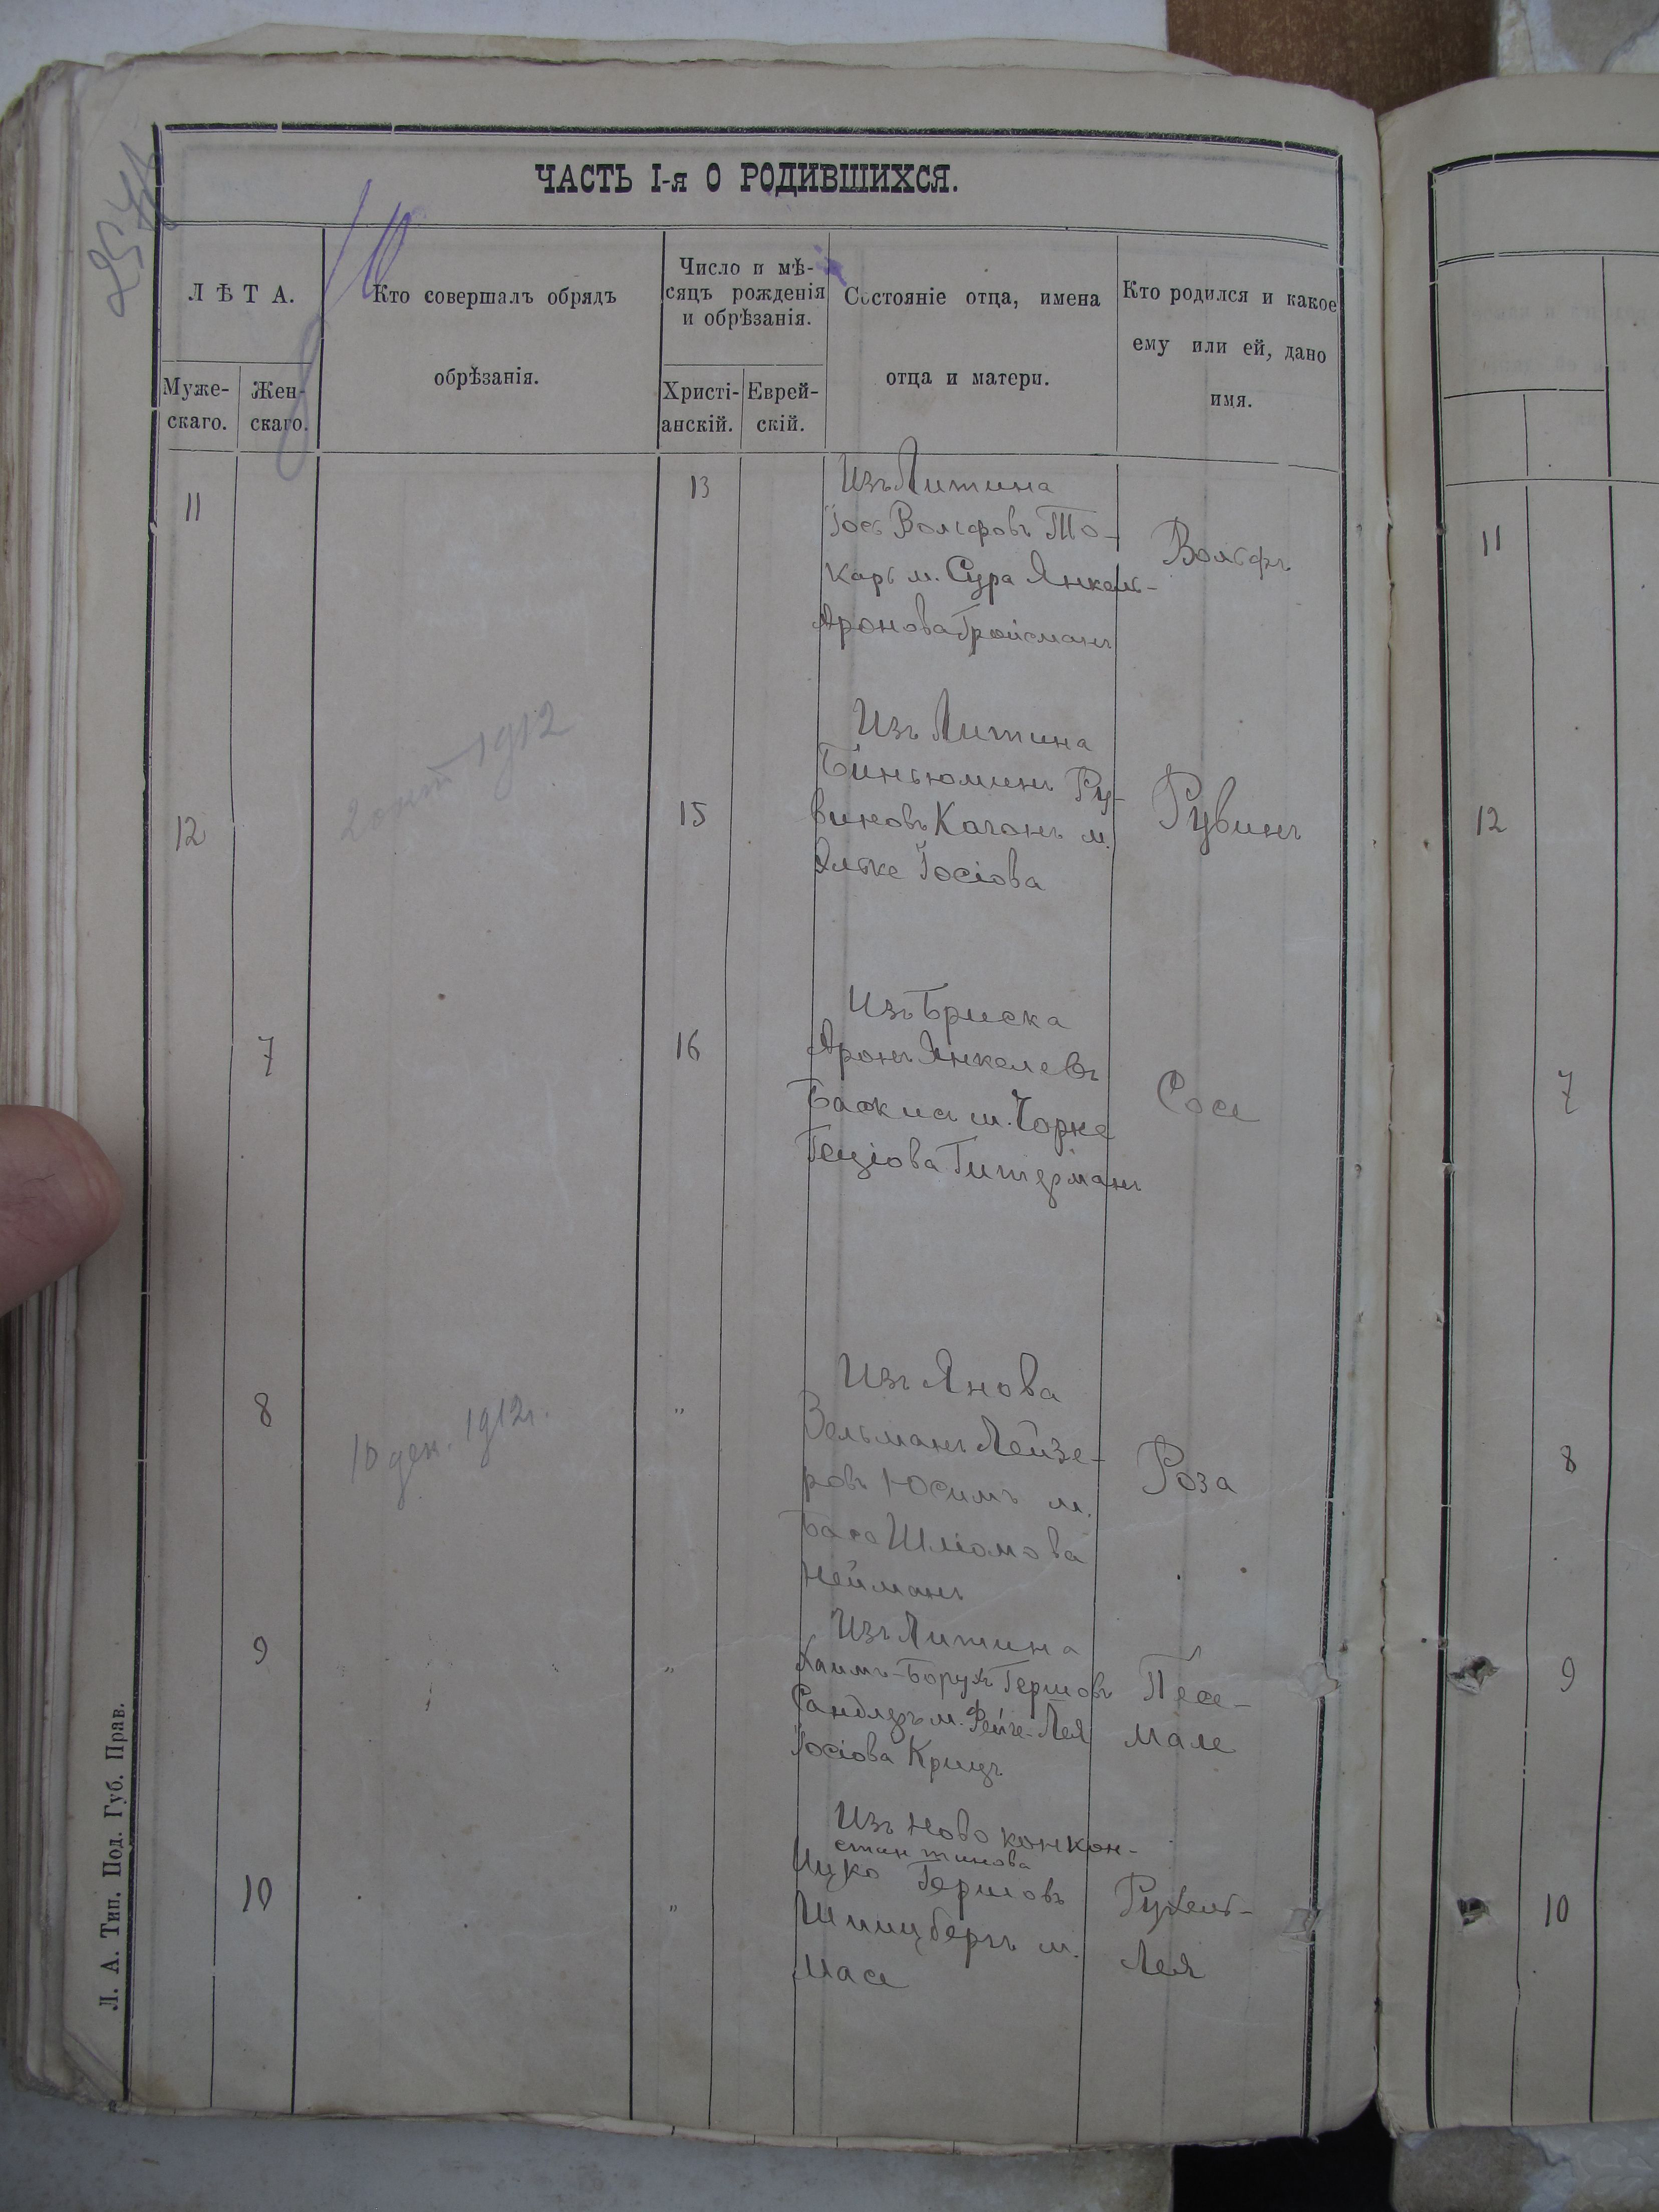 ЧАСТЬ I-я О РОДИВШИХСЯ.
ЛѢТА.
Муже-
скаго.
Жен-
скаго.
Кто совершалъ обрядъ
обрѣзанія.
Число и мѣ-
сяцъ рожденія
и обрѣзанія.
Христі-
анскій.
Еврей-
скій.
Состояніе отца, имена
отца и матери.
Кто родился и какое
ему или ей, дано
имя.
11
13
Изъ Литина
Іось Вольфовъ То-
карь м. Сура Янкель-
Аронова Гройсманъ
Вольфъ
11
2 окт 1912
12
15
Изъ Литина
Биньюминъ Ру-
виновъ Каганъ м.
Элька Іосіова
Рувинъ
12
7
16
Изъ Бриска
Аронъ Янкелевъ
м. Чорне
Гитерманъ
Сося
7
8
10 дек. 1912г.
"
Изъ Янова
Зельманъ Лейзе-
ровъ Юсимъ м.
Бася Шліомова
Нейманъ
Роза
8
9
"
Изъ Литина
Хаимъ-Борухъ Гершовъ
Сандлеръ м. Фейге-Лея
Іосіова Крицъ
Песе-
Мале
9
10
"
Изъ Новоконкон-
стантинова
Ицко Гершовъ
Шпицбергъ м.
Мася
Рухель-
Лея
10
Л. А. Тип. Под. Губ. Прав.